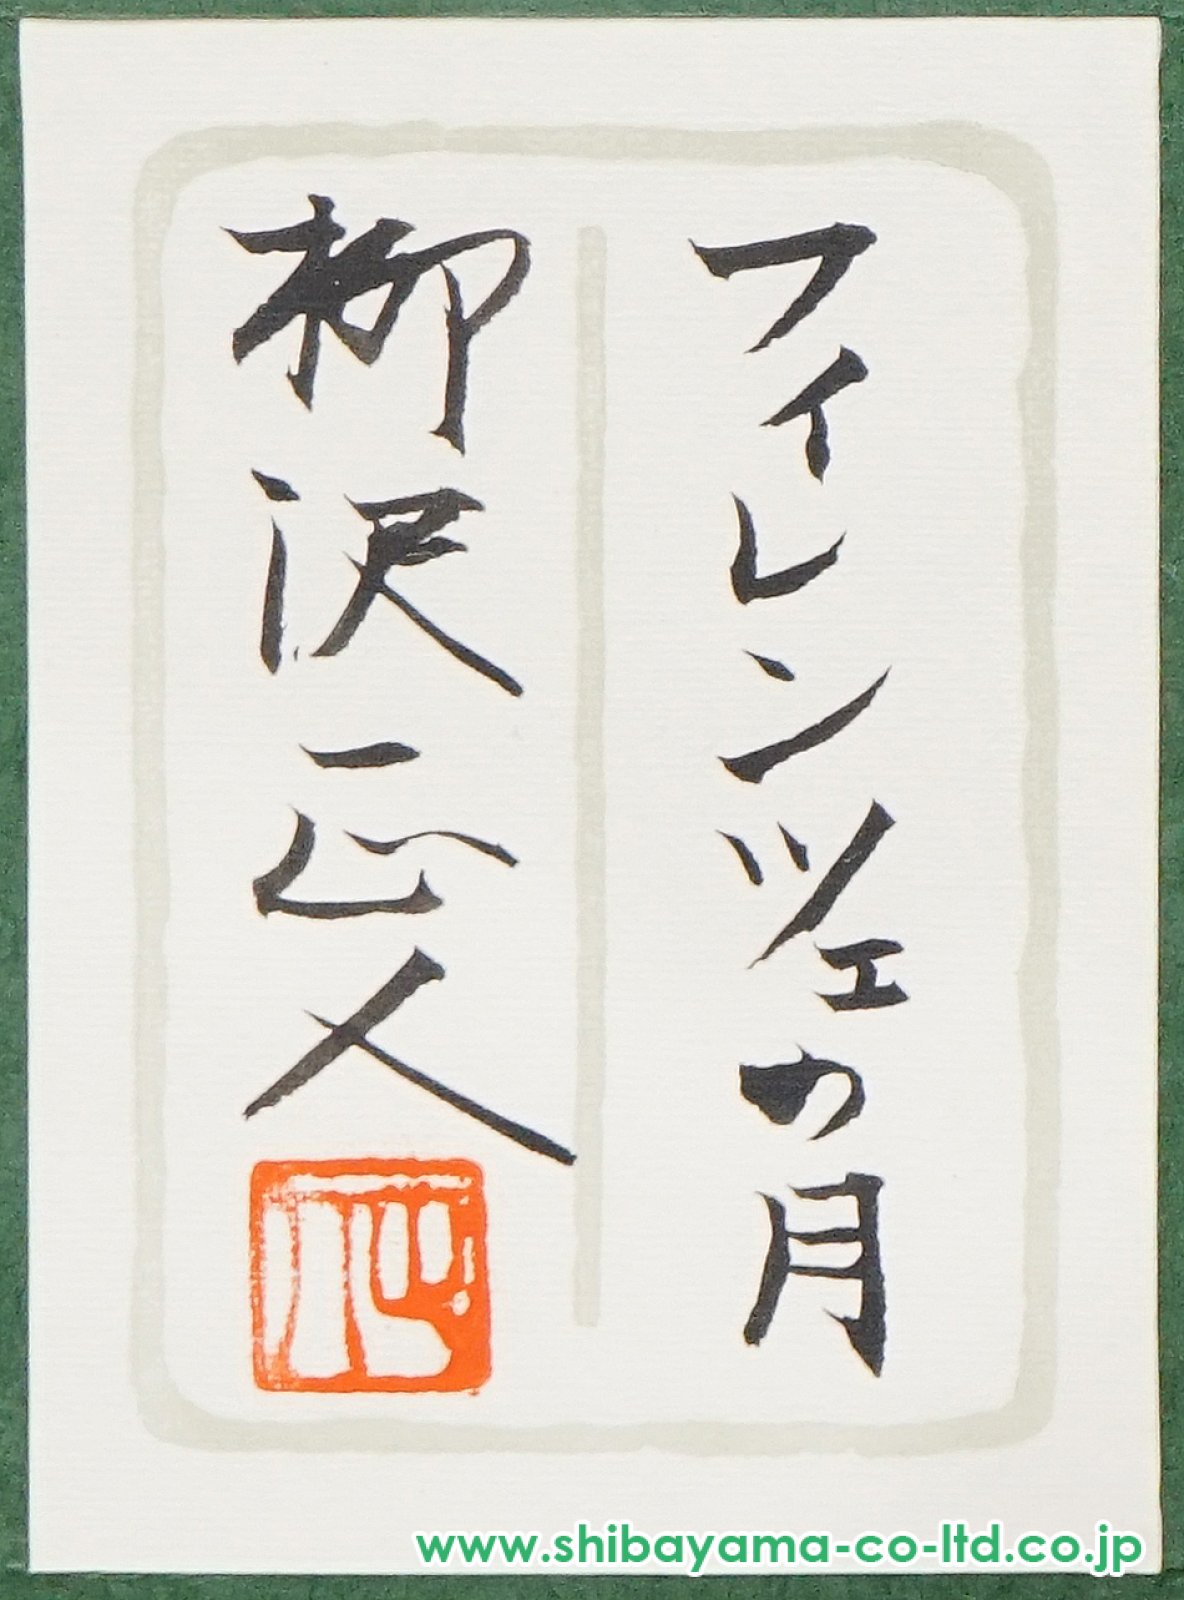 フィレンツェの月
柳沢正人
www.shibayama-co-ltd.co.jp